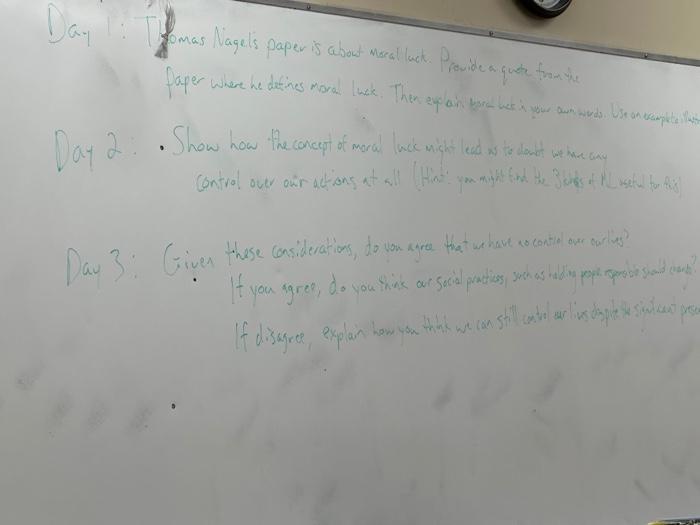 Day 1: Thomas Nagel's paper is about moral luck. Provide a quote from the
paper where he defines moral luck. Then explain moral luck in your own words. Use an example to
Day 2: • Show how the concept of moral luck might lead us to doubt we have any
control over our actions at all (Hint: you might find the 3 kinds of ML useful for this)
Day 3: Given these considerations, do you agree that we have no control over our lives?
If you agree, do you think our social practices, such as holding people responsible should change?
If disagree, explain how you think we can still control our lives dispite the significant